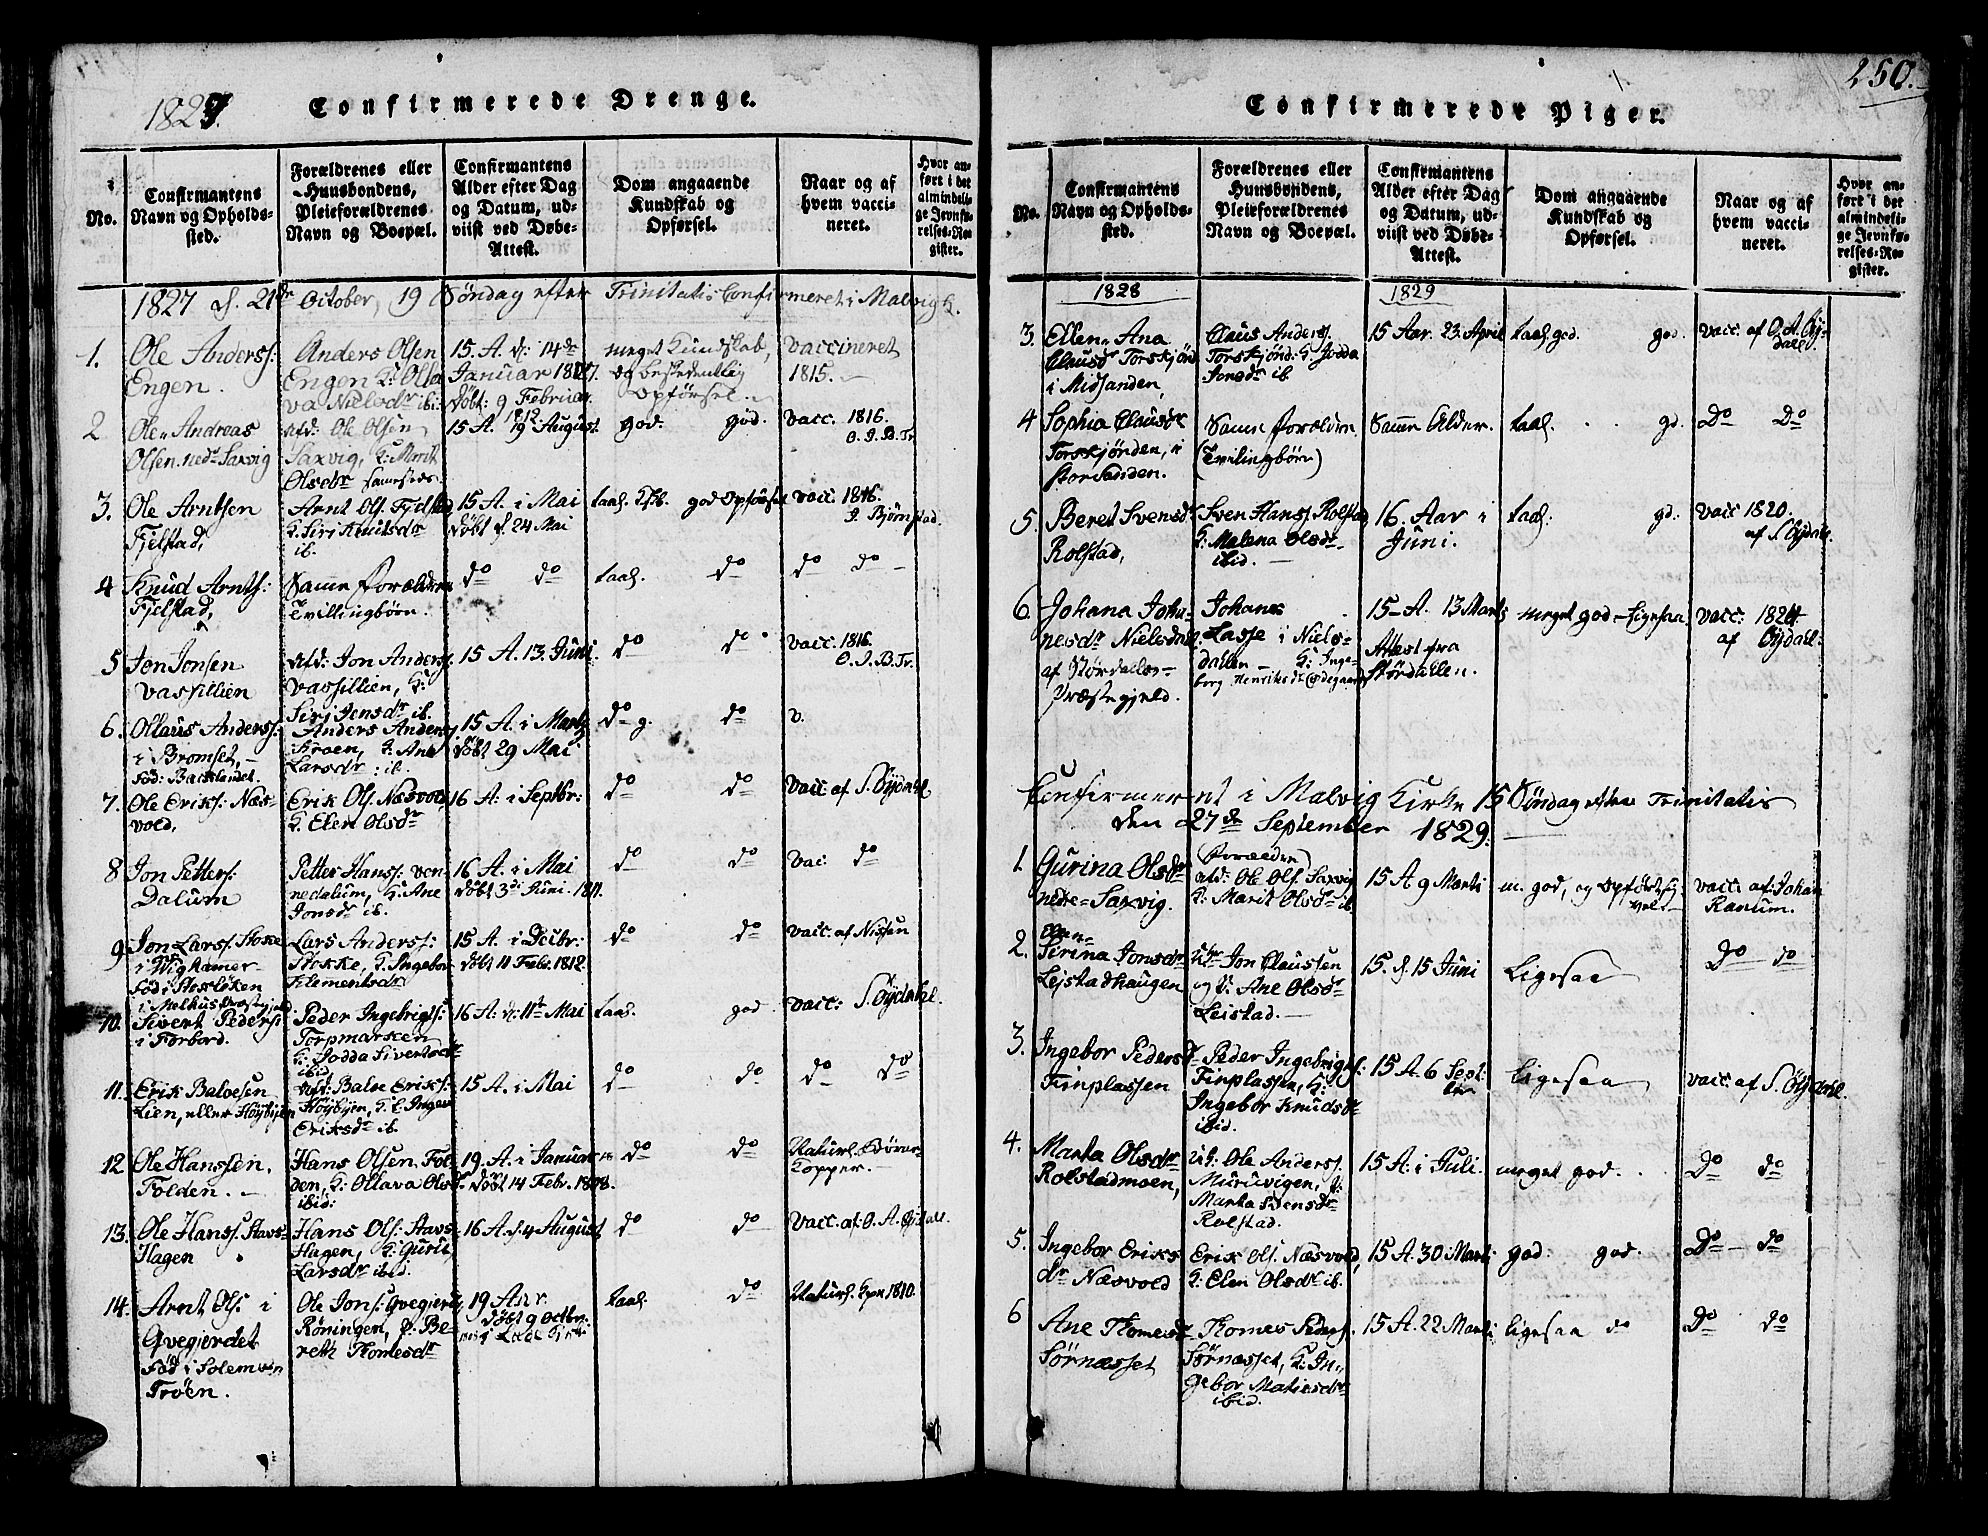 1827.
Confirmerede Drenge.
No.
Confirmantens
Navn og Opholds-
sted.
Forældrenes eller
Huusbondens,
Pleieforældrenes
Navn og Boepæl.
Confirmantens
Alder efter Dag
og Datum, ud-
viist ved Døbe-
Attest.
Dom angaaende
Kundskab og
Opførsel.
Naar og af
hvem vacci-
neret.
Hvor an-
ført i det
almindeli-
ge Jevnfø-
relses-Re-
gister.
1827 d. 21de October, 19 Søndag efter Trinitatis Confirmeret i Malvig K.
1.
Ole Anderss:
Engen.
Anders Olsen
Engen K: Olla
va Nielsdr ibi:
15. A. d: 14de
Januar
Døbt: 9 Februar.
meget Kundskab,
og beskedentlig
Opførsel.
Vaccineret
1815.
2
Ole Andreas
Olsen nedr Saxvig
Ole Olsen
Saxvig, K: Marit
Olsdr
15 A. 19 August
1812
god. god.
vacc. 1816.
O. J. B. Tr.
3.
Ole Arntsen
Fjelstad,
Arnt Ols. Fjelstad
K. Siri Knutsdr
ib.
15 A. i Mai
Døbt d. 24 Mai
taal. god Opførsel
vacc. 1816.
J. Bjørnstad.
4
Knud Arnts:
Fjelstad,
Samme Forældre
Tvillingbørn.
Do Do
taal. Do
Do Do
5
Jon Jonsen
Vassillien
Jon Anderss.
Vassillien, K:
Siri Jensdr ib.
15 A. 13. Juni.
Do Do
Vacc. 1816.
O. J. B. Tr.
6.
Ollaus Anderss:
i Bromset,
Fød: Backlandet.
Anders Anders
Kroen, K: Ane
Larsdr: ib.
15 A. i Martz
Døbt 29 Mai
Do g. Do
v.
7.
Ole Eriks: Næs-
vold,
Erik Ols. Næsvold,
K. Elen Olsdr
16 A: i Septbr:
Do Do
vacc af S. Øydahl
8
Jon Petters:
Dalum
Petter Hanss: Ven-
nedalum, K: Ane
Jonsdr ib.
16 A. i Mai
Døbt 3de Juni. 1811.
Do Do
Vac: Do
9
Jon Larss. Stokke
i Wighamer-
Fød i Storløken
i Melhus Præstegjeld
Lars Anderss:
Stokke, K. Ingebor
Klementsdr
15 A. i Decbr:
Døbt 11 Febr. 1812.
Do Do
vacc. af Nissen
10.
Sivert Peders:
i Forbord.
Peder Ingebrigts:
Torpmarken
K: Jodda Sivertsdr
ibid.
16 A: d: 11te Mai
taal. god
vacc: S. Øydahl.
11.
Erik Balvesen
Lien, eller Høybyen
Balve Eriks:
Høybyen, K: E. Inger
Eriksdr ib.
15 A. i Mai
Do Do
Do Do
12
Ole Hanssen.
Folden.
Hans Olsen Fol-
den, K: Ollava Olsdr
ibid:
19. A. i Januar
Døbt 14 Febr. 1808.
Do Do
Naturl. Børne
Kopper.
13.
Ole Hanss. Stavs-
Hagen
Hans Ols: Stavs-
Hagen, K: Guru
Larsdr ibid.
16 A. d. 4 August
Do Do
Vacc. af O. A. Øydahl.
14.
Arnt Ols: i
Gvegjerdet
Fød i Solem
Trøen.
Ole Jons: Gvegjerd
Røningen, K: Be-
reth Thomesdr
19 Anr.
Døbt 9 Octbr.
taal. Do
Naturl. Kpr 1810.
250.
Confirmerede Piger.
No.
Confirmantens
Navn og Opholds-
sted.
Forældrenes eller
Huusbondens,
Pleieforældrenes
Navn og Boepæl.
Confirmantens
Alder efter Dag
og Datum, ud-
viist ved Døbe-
Attest.
Dom angaaende
Kundskab og
Opførsel.
Naar og af
hvem vacci-
neret.
Hvor an-
ført i det
almindeli-
ge Jevnfø-
relses-Re-
gister.
1828
1829
3.
Ellen Ana
Clausdr Torskjønd
i Midsanden,
Claus Anderss.
Torskjønd: K: Jodda
Jonsdr ib.
15 Aar. 23. April
taal. god. god.
vacc. af O. A. Øy-
dahl.
4
Sophia Clausdr
Torskjønden, i
Storsanden.
Samme Forældre.
(Tvilingbørn)
Samme Alder.
taal. gd.
Do Do
5.
Beret Svensdr
Rolstad,
Sven Hanss. Rolstad
K: Malena Olsdr
ibid.
16. Aar i
Juni.
taal: gd:
vacc 1820.
af S. Øydahl.
6.
Johana Joha-
nesdr Nielsdal,
af Størdalles-
Præstegjeld.
Johanes
Lasse i Niels-
dallen K: Inge-
borg Henriksdr Ødegaard
15 A. 13 Marts
Attest fra
Størdallen.
meget god - Ligesaa
vacc: 1824
af Øydahl:
Confirmeret i Malvig Kirke 15 Søndag efter Trinitatis
den 27de September 1829.
1.
Gurina Olsdr
nedre Saxvig.
(Forældre)
Ole Ols. Saxvig
K: Marit Olsdr ib.
15 A 9 Marti
m. god, og Opført sig
vel.
vacc: af: Johan
Ranum.
2.
Elen-
Serina Jonsdr
Lejstadhaugen
Jon Claussen
og K: Ane Olsdr
Leistad.
15. d. 15 Juni
Ligesaa
Do Do
3.
Ingebor Pedersdr
Finplassen
Peder Ingebrigts:
Finplassen, K:
Ingebor Knudsdr
ibid.
15 A. 6 Sept:
Ligesaa
vacc: af S. Øydahl.
4.
Marta Olsdr
Rolstadmoen,
Ole Anderss.
Muruvigen, K:
Marta Svensdr
Rolstad.
15 A: i Juli.
meget god.
Do Do
5.
Ingebor Eriks
dr Næsvold
Erik Ols. Næsvold,
K: Elen Olsdr ib.
15 A. 30 Marti
god: god.
Do Do
6
Ane Thomesdr
Sørnæsset
Thomes Peders.
Sørnæsset, K: In-
gebor Matiesdr
ibid.
15 A. 22 Marti
ligesaa do
Do Do